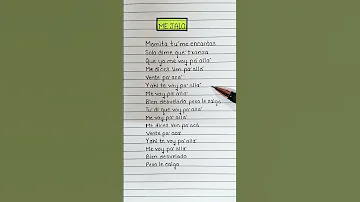 ME JALO
Mamita tu' me encantas
Solo dime que' tranza
Que ya me voy pa' alla'
Me dices ven pa' alla'
Vente pa' aca'
Y ahi te voy pa' alla'
Me voy pa' alla'
Bien desvelado pero le caigo
Tu di que voy pa' aca'
Me voy pa' alla'
Me dices ven pa' acá
Vente pa' aca'
Y ahi te voy pa' alla'
Me voy pa' alla'
Bien desvelado
Pero le caigo